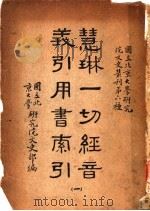 國立北京大學研究
院文史叢刊第六種
慧琳一切經音
義引用書索引
(一)
國立北
京大學研究院文史部編